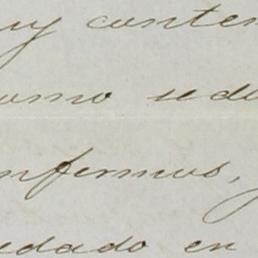 uy conten
como sedu
nfermos,
edado en